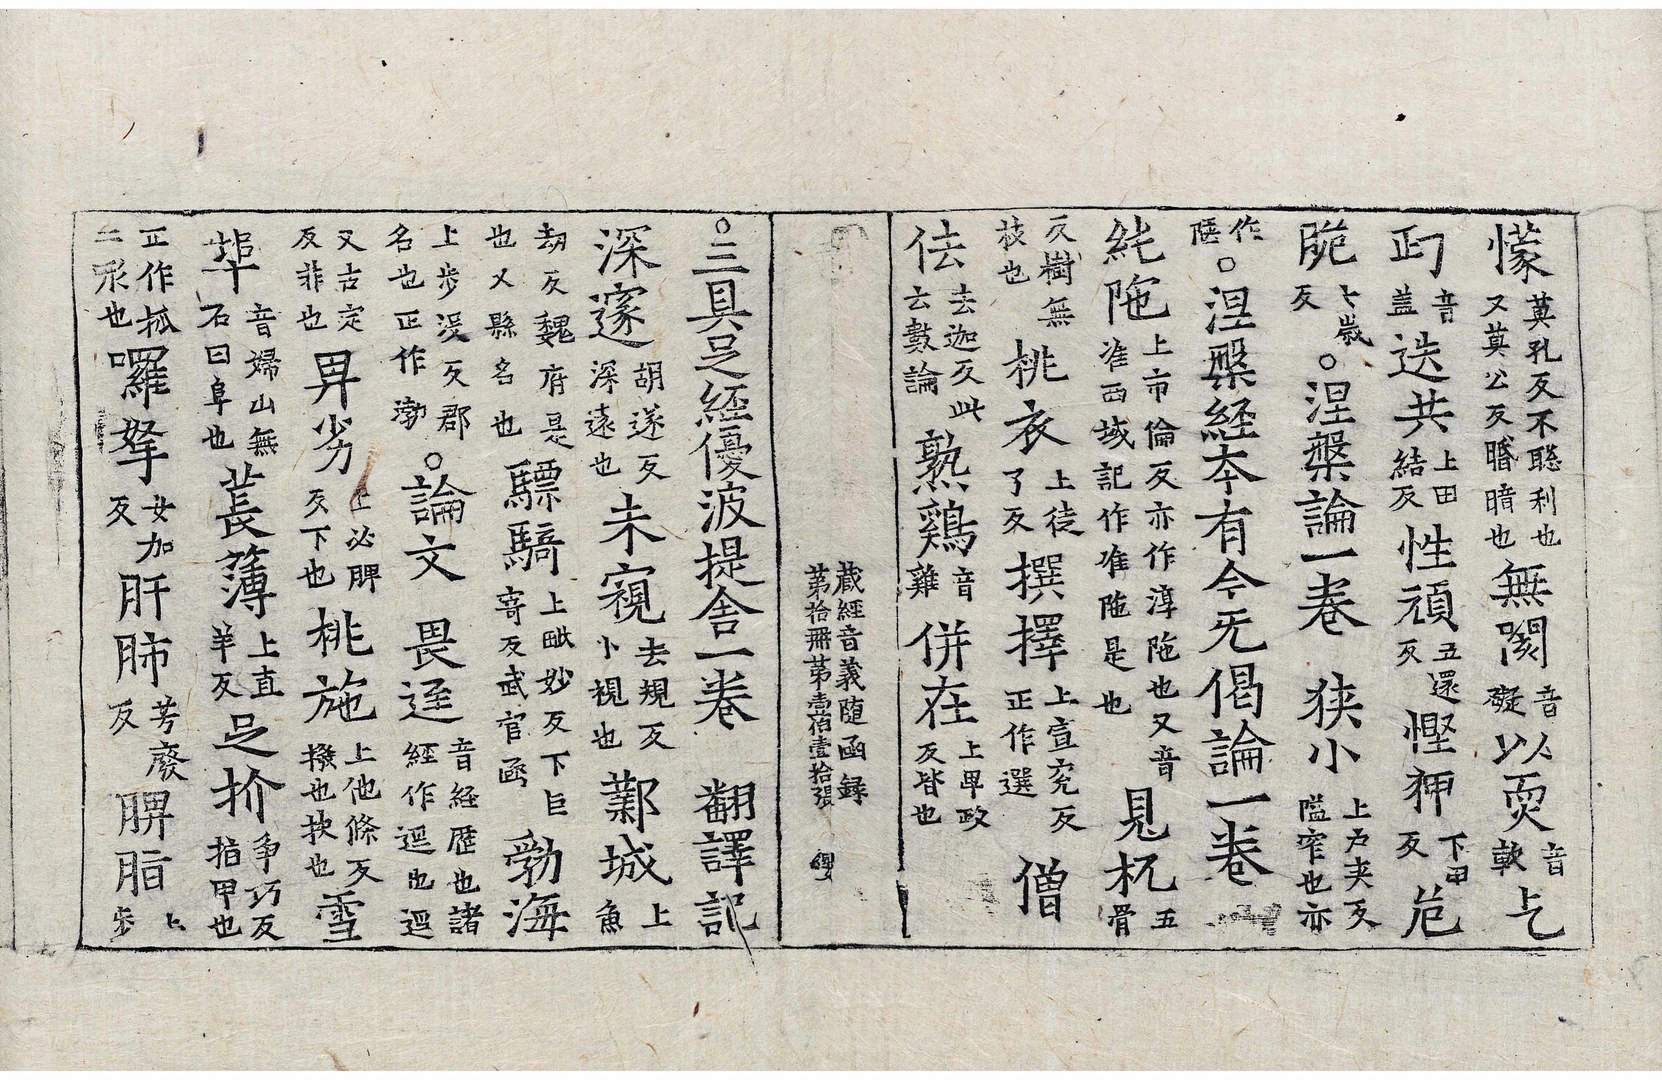 懞莫孔反不聡利也又莫公反䁅暗也無閡音礙以耎音軟上乞
匃音盖迭共上田結反性頑五還反慳狎下甲反危
脆七歲反○涅槃論一卷 狹小上戸夾反隘窄也亦
作陿○涅槃經本有今无偈論一卷
純陁上市倫反亦作淳陁也又音准西域記作准陁是也見杌五骨
反樹無枝也桃衣上徒了反撰擇上宣兖反正作選僧
佉去迦反此云數論熟鷄音雞併在上畢政反皆也
藏經音義随函録
第拾冊第壹佰壹拾張
○三具足經優波提舍一卷 翻譯記
深邃胡遂反深遠也未窺去規反小視也鄴城上魚
刼反魏府是也又縣名也驃騎上毗妙反下巨寄反武官函勃海
上步没反郡名也正作渤○論文 畏逕音經歷也諸經作逕也逕
又古定反非也畀劣上必脾反下也桃施上他條反撥也抉也雪
埠音婦山無石曰阜也萇簿上直羊反足抓爭巧反指甲也
正作抓二形也囉拏女加反肝肺芳廢反脾脂上步